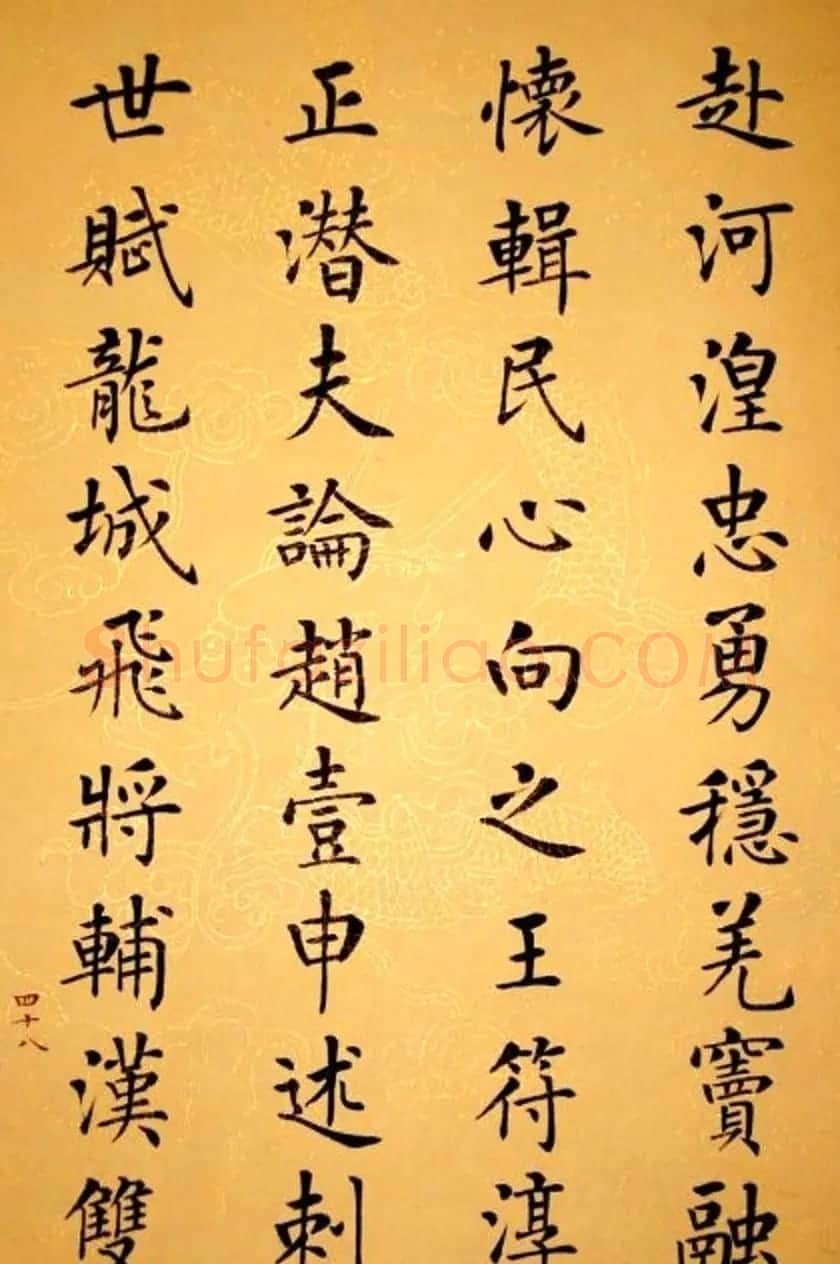 赴河湟忠勇穩羌竇融
懷輯民心向之王符淳
正潛夫論趙壹申述刺
世賦龍城飛將輔漢雙
四十八
shufaziliao.com